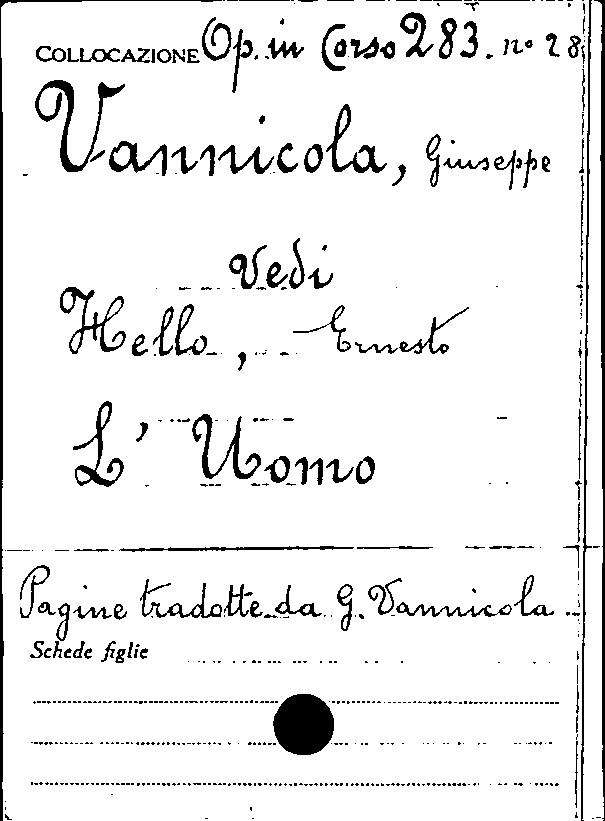 COLLOCAZIONE Op. in Corso 283. n° 28
Vannicola, Giuseppe
Vedi
Hello, Ernesto
L' Uomo
Pagine tradotte da G. Vannicola
Schede figlie